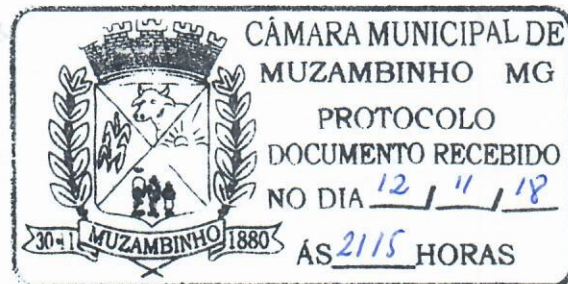 CÂMARA MUNICIPAL DE
MUZAMBINHO MG
PROTOCOLO
DOCUMENTO RECEBIDO
NO DIA 12 / 11 / 18
ÀS 2115 HORAS
30-11 MUZAMBINHO 1880